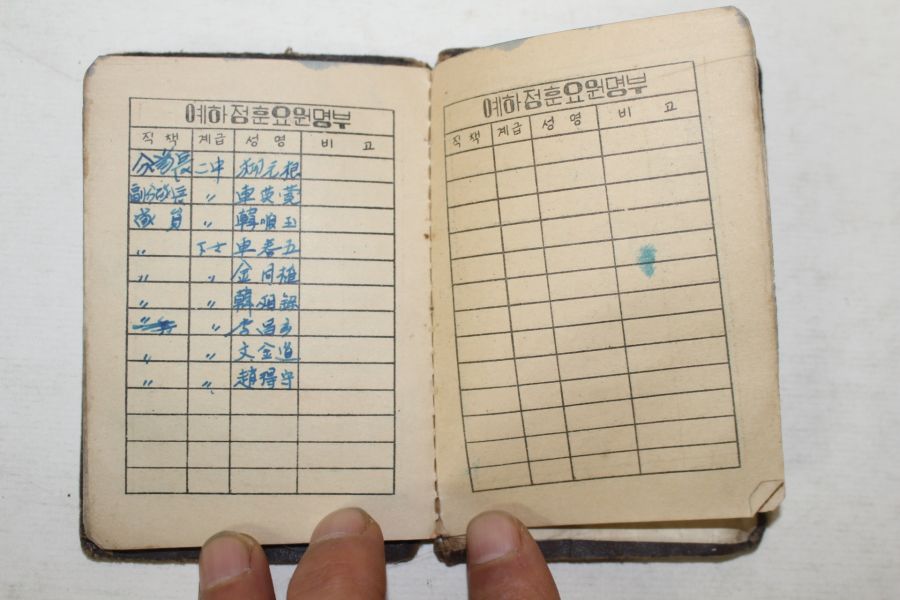 예하정훈요원명부
직책 계급 성명 비고
分隊長 二中 元根
副分隊長 〃 車英
隊員 〃 韓順玉
〃 下士 車春五
〃 〃 金同
〃 〃 韓
〃 〃 李昌
〃 〃 文金道
〃 〃 趙得守
예하정훈요원명부
직책 계급 성명 비고